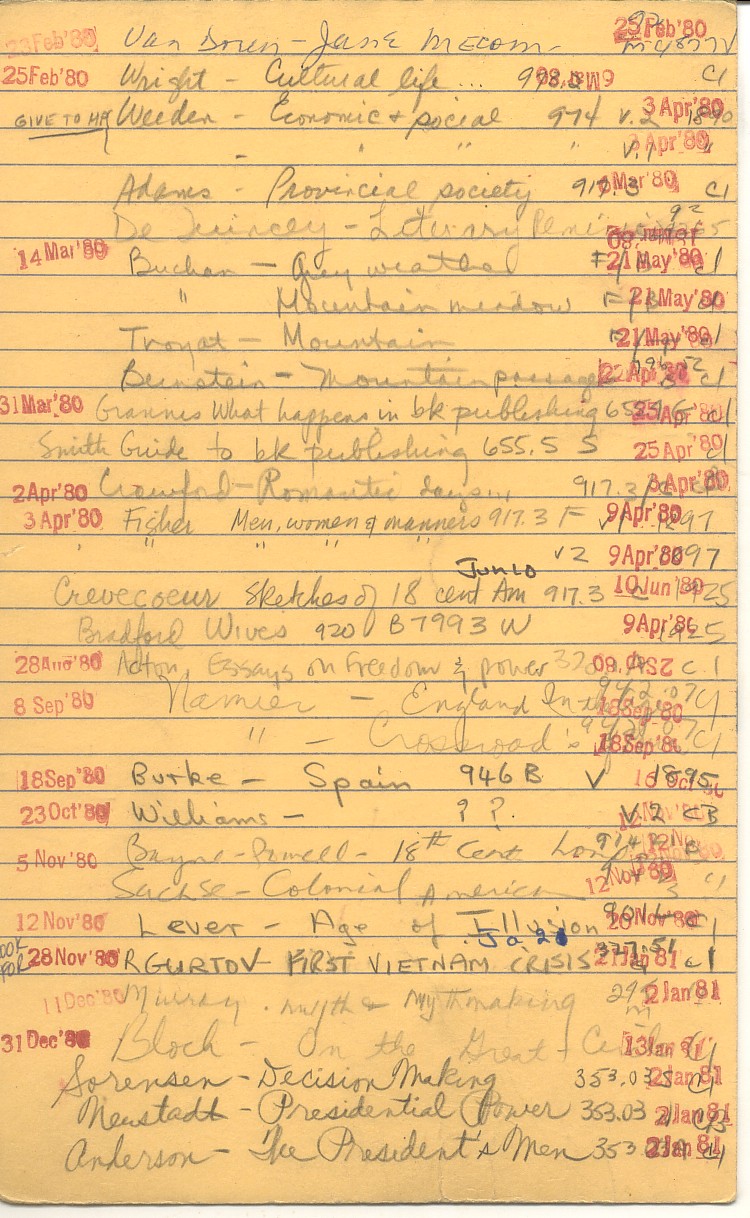 23 Feb '80 Van Doren - Jane Mecom - 92 25 Feb '80
25 Feb '80 Wright - Cultural life ... 6 Mar '80 C1
GIVE TO HP Weeden - Economic & social 974 v.2 3 Apr '80 1890
- " " " v.1 3 Apr '80 "
Adams - Provincial society 917.3 Mar '80 C1
De Quincey - Literary 92
14 Mar '80 Buchan - Grey weather F 21 May '80 C1
" Mountain meadow F B 21 May '80 C1
Troyat - Mountain F 21 May '80 C1
Bernstein - Mountain passages 22 Apr C1
31 Mar '80 Grannis What happens in bk publishing 655 G 25 Apr '80 C1
Smith Guide to bk publishing 655.5 S 25 Apr '80 C1
2 Apr '80 Crawford - Romantic days ... 917.3 3 Apr '80
3 Apr '80 Fisher Men, women & manners 917.3 F v1 9 Apr '80 1897
" " " " " v2 9 Apr '80 1897
Jun 10
Crevecoeur Sketches of 18 cent Am 917.3 C 10 Jun '80 1925
Bradford Wives 920 B7993W 9 Apr '80 1925
28 Aug '80 Acton Essays on freedom & power 2 Sep '80 C.1
8 Sep '80 Namier - England In the 942.07 18 Sep '80 C1
" - Crossroads 18 Sep '80 C1
18 Sep '80 Burke - Spain 946 B V 1895
23 Oct '80 Williams - ? ? V.2 12 Nov '80 CB
5 Nov '80 Bayne-Powell - 18th Cent. 914 B
Sachse - Colonial American 12 Nov '80 C1
12 Nov '80 Lever - Age of Illusion 901 L 20 Nov '80 C1
Ja 2
LOOK FOR 28 Nov '80 R GURTOV - FIRST VIETNAM CRISIS 327.51 2 Jan 81 C1
11 Dec '80 Murray . myth & mythmaking 2 Jan 81
31 Dec '80 Bloch - On the Great 13 Jan 81 C1
Sorensen - Decision Making 353.03 S 2 Jan 81 C1
Neustadt - Presidential Power 353.03 2 Jan 81 CB
Anderson - The President's Men 353.03 A 2 Jan 81 C1